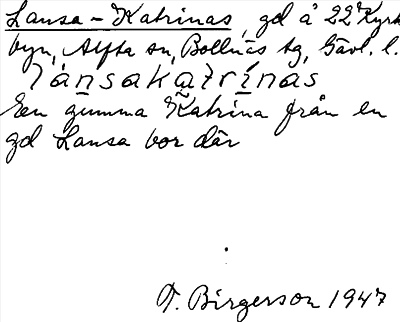 Lansa-Katrinas, gd å 22 Kyrk
byn, Alfta sn, Bollnäs tg, Gävl. l.
lánsakatrínas
En gumma Katrina från en
gd Lansa bor där
T. Birgerson 1947